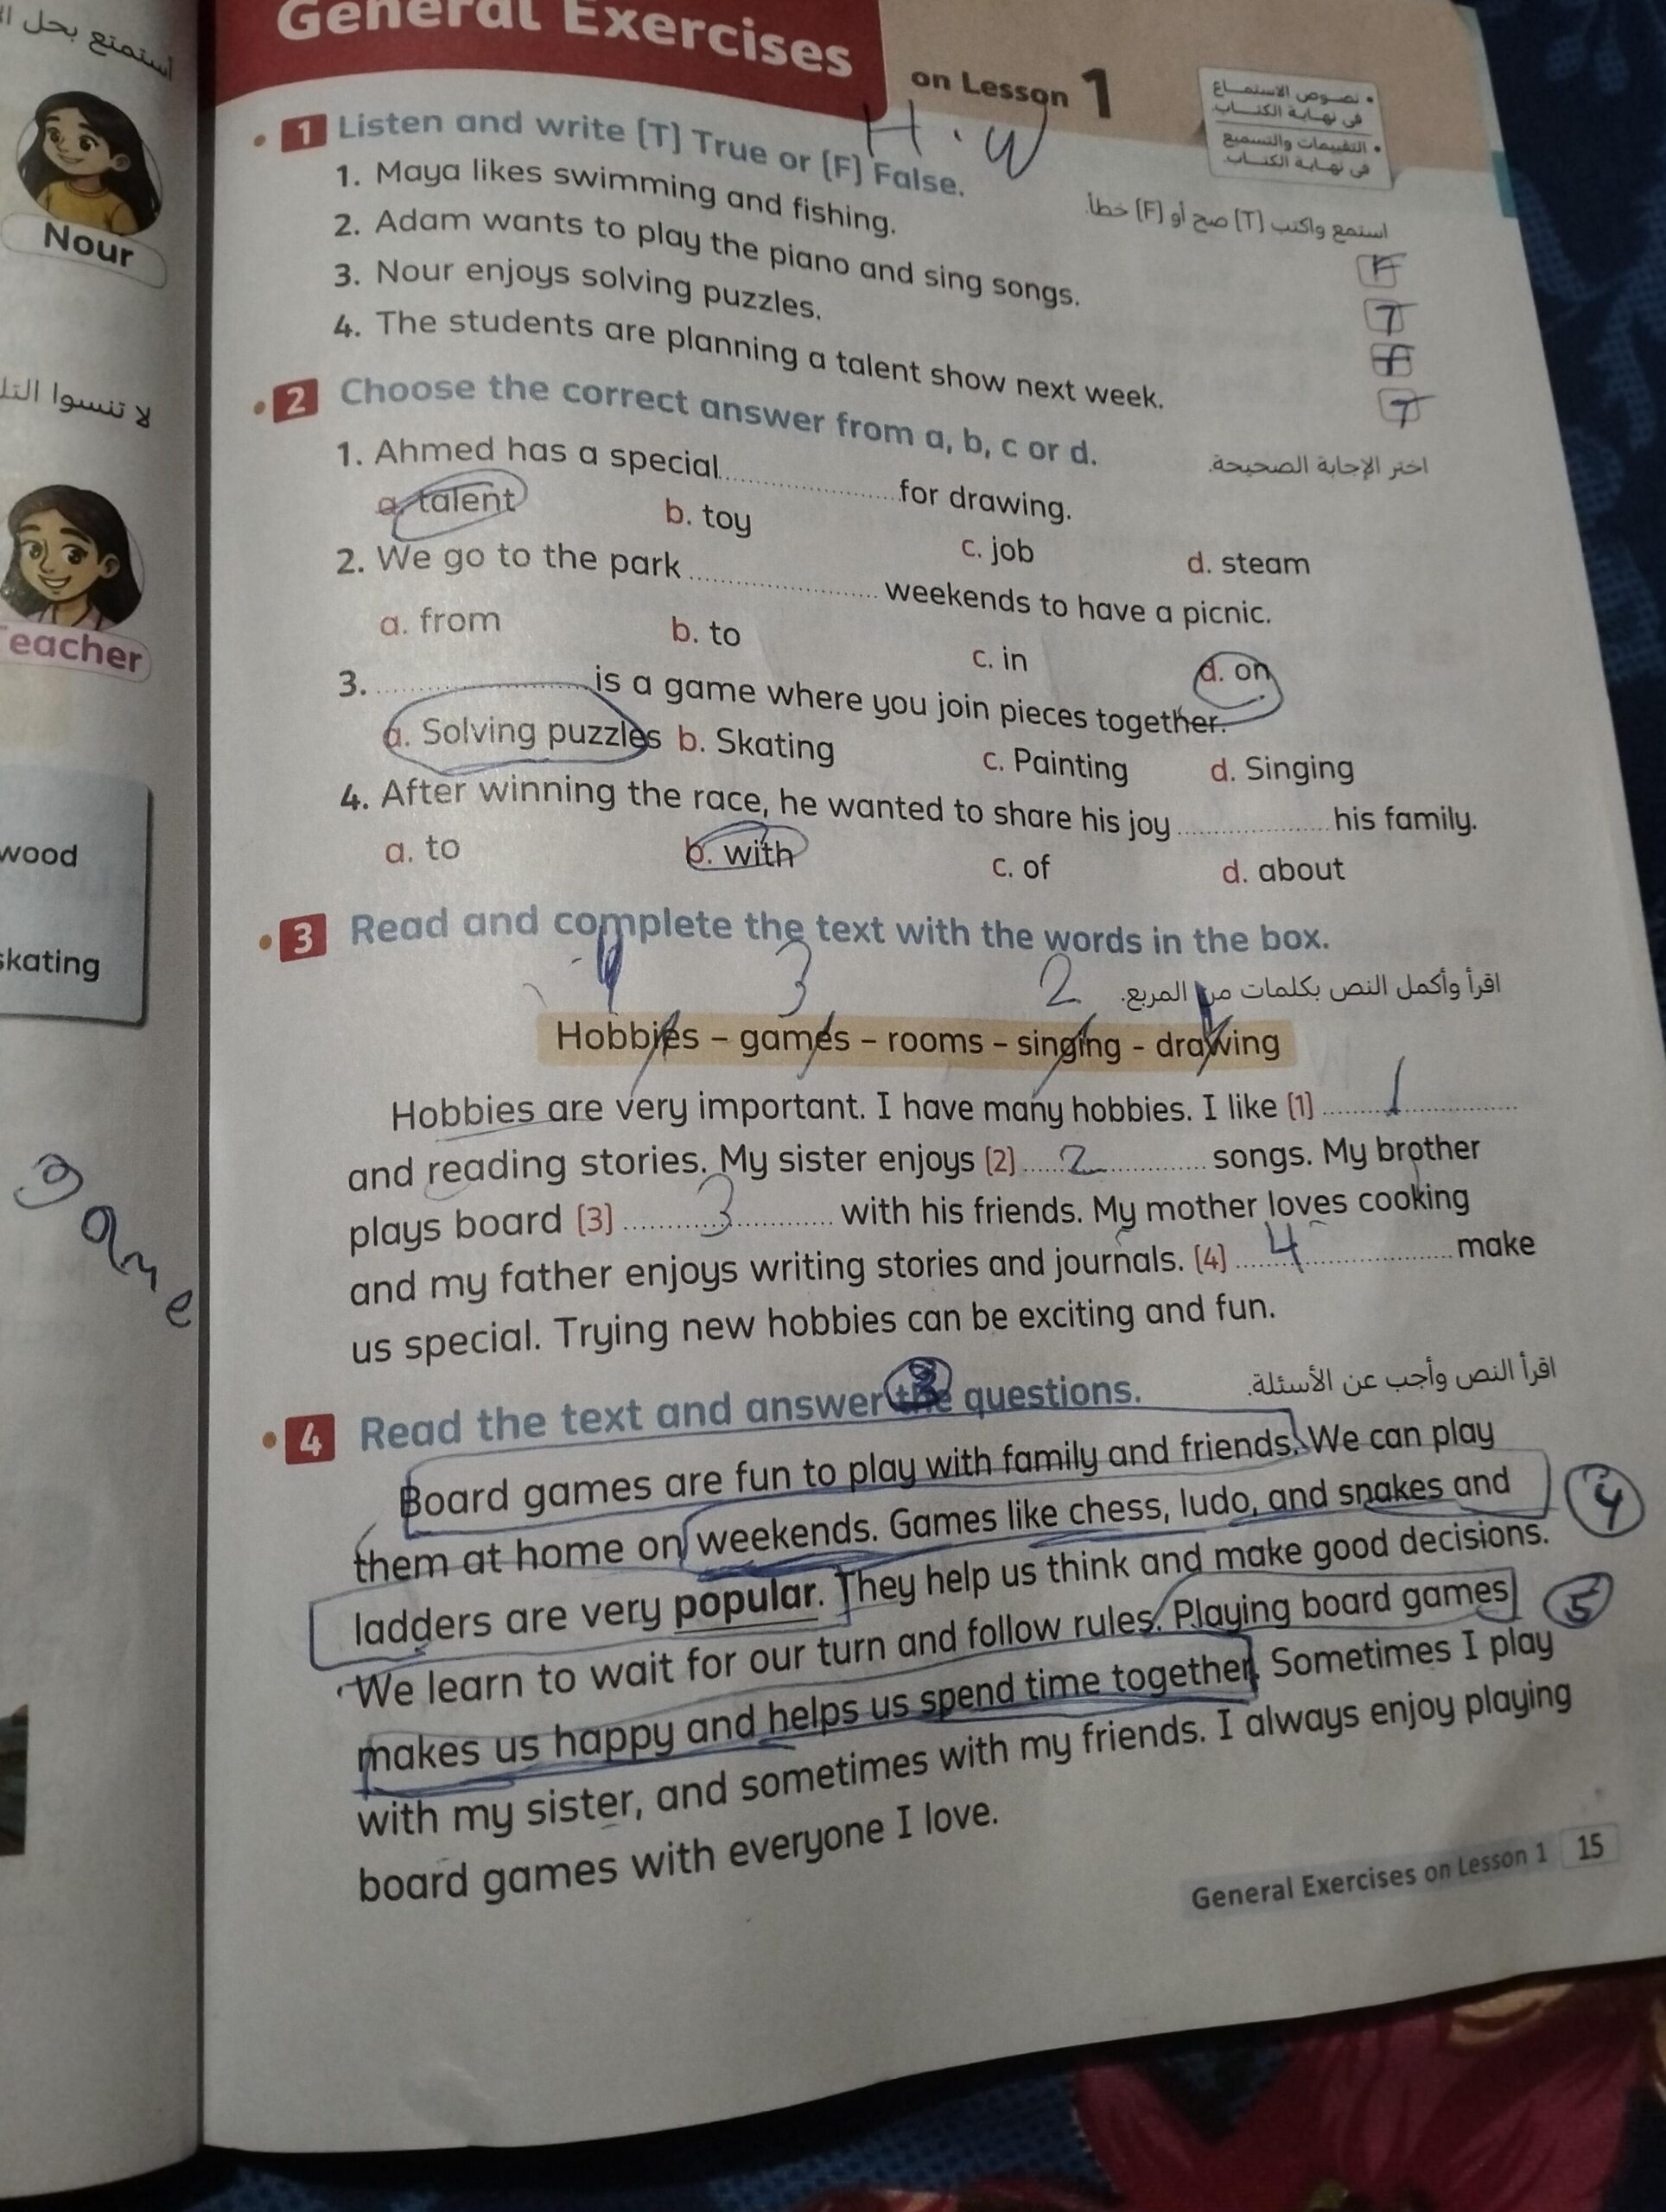 أستمتع بحل
Nour
لا تنسوا
Teacher
wood
skating
game
General Exercises on Lesson 1
H.W
• نصوص الاستماع
فى نهاية الكتاب.
• التقييمات والتسميع
فى نهاية الكتاب.
1 Listen and write (T) True or (F) False.
استمع واكتب (T) صح أو (F) خطأ.
1. Maya likes swimming and fishing. F
2. Adam wants to play the piano and sing songs. T
3. Nour enjoys solving puzzles.
4. The students are planning a talent show next week. T
2 Choose the correct answer from a, b, c or d.
اختر الإجابة الصحيحة.
1. Ahmed has a special .................... for drawing.
a. talent b. toy c. job d. steam
2. We go to the park .................... weekends to have a picnic.
a. from b. to c. in d. on
3. .................... is a game where you join pieces together.
a. Solving puzzles b. Skating c. Painting d. Singing
4. After winning the race, he wanted to share his joy .................... his family.
a. to b. with c. of d. about
3 Read and complete the text with the words in the box.
اقرأ وأكمل النص بكلمات من المربع.
4 3 2 1
Hobbies – games – rooms – singing - drawing
Hobbies are very important. I have many hobbies. I like (1) ........1........
and reading stories. My sister enjoys (2) ........2........ songs. My brother
plays board (3) ........3........ with his friends. My mother loves cooking
and my father enjoys writing stories and journals. (4) ........4........ make
us special. Trying new hobbies can be exciting and fun.
4 Read the text and answer the questions.
3
اقرأ النص وأجب عن الأسئلة.
Board games are fun to play with family and friends. We can play
them at home on weekends. Games like chess, ludo, and snakes and 4
ladders are very popular. They help us think and make good decisions.
We learn to wait for our turn and follow rules. Playing board games 5
makes us happy and helps us spend time together. Sometimes I play
with my sister, and sometimes with my friends. I always enjoy playing
board games with everyone I love.
General Exercises on Lesson 1 15